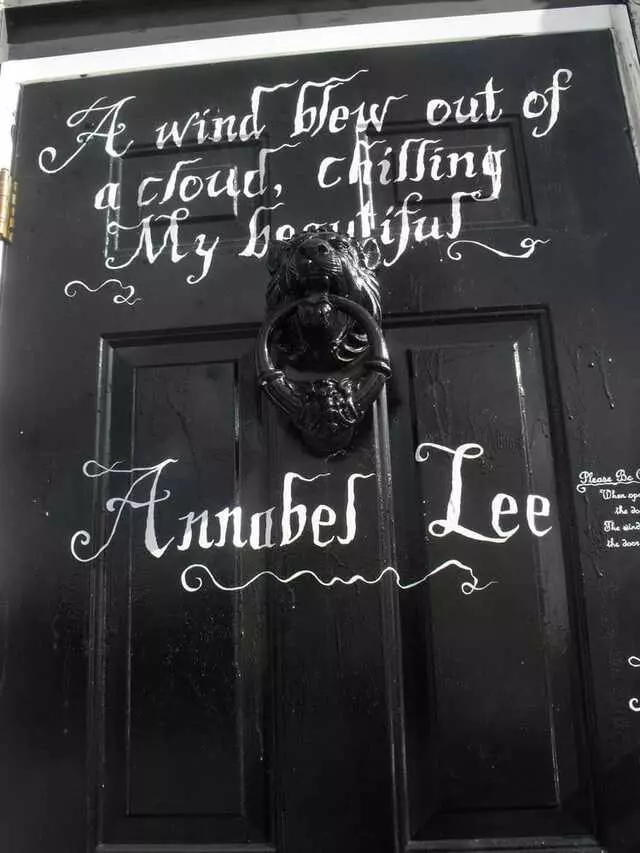 A wind blew out of
a cloud, chilling
My beautiful
Annabel Lee
Please Be
When
the
The
the door